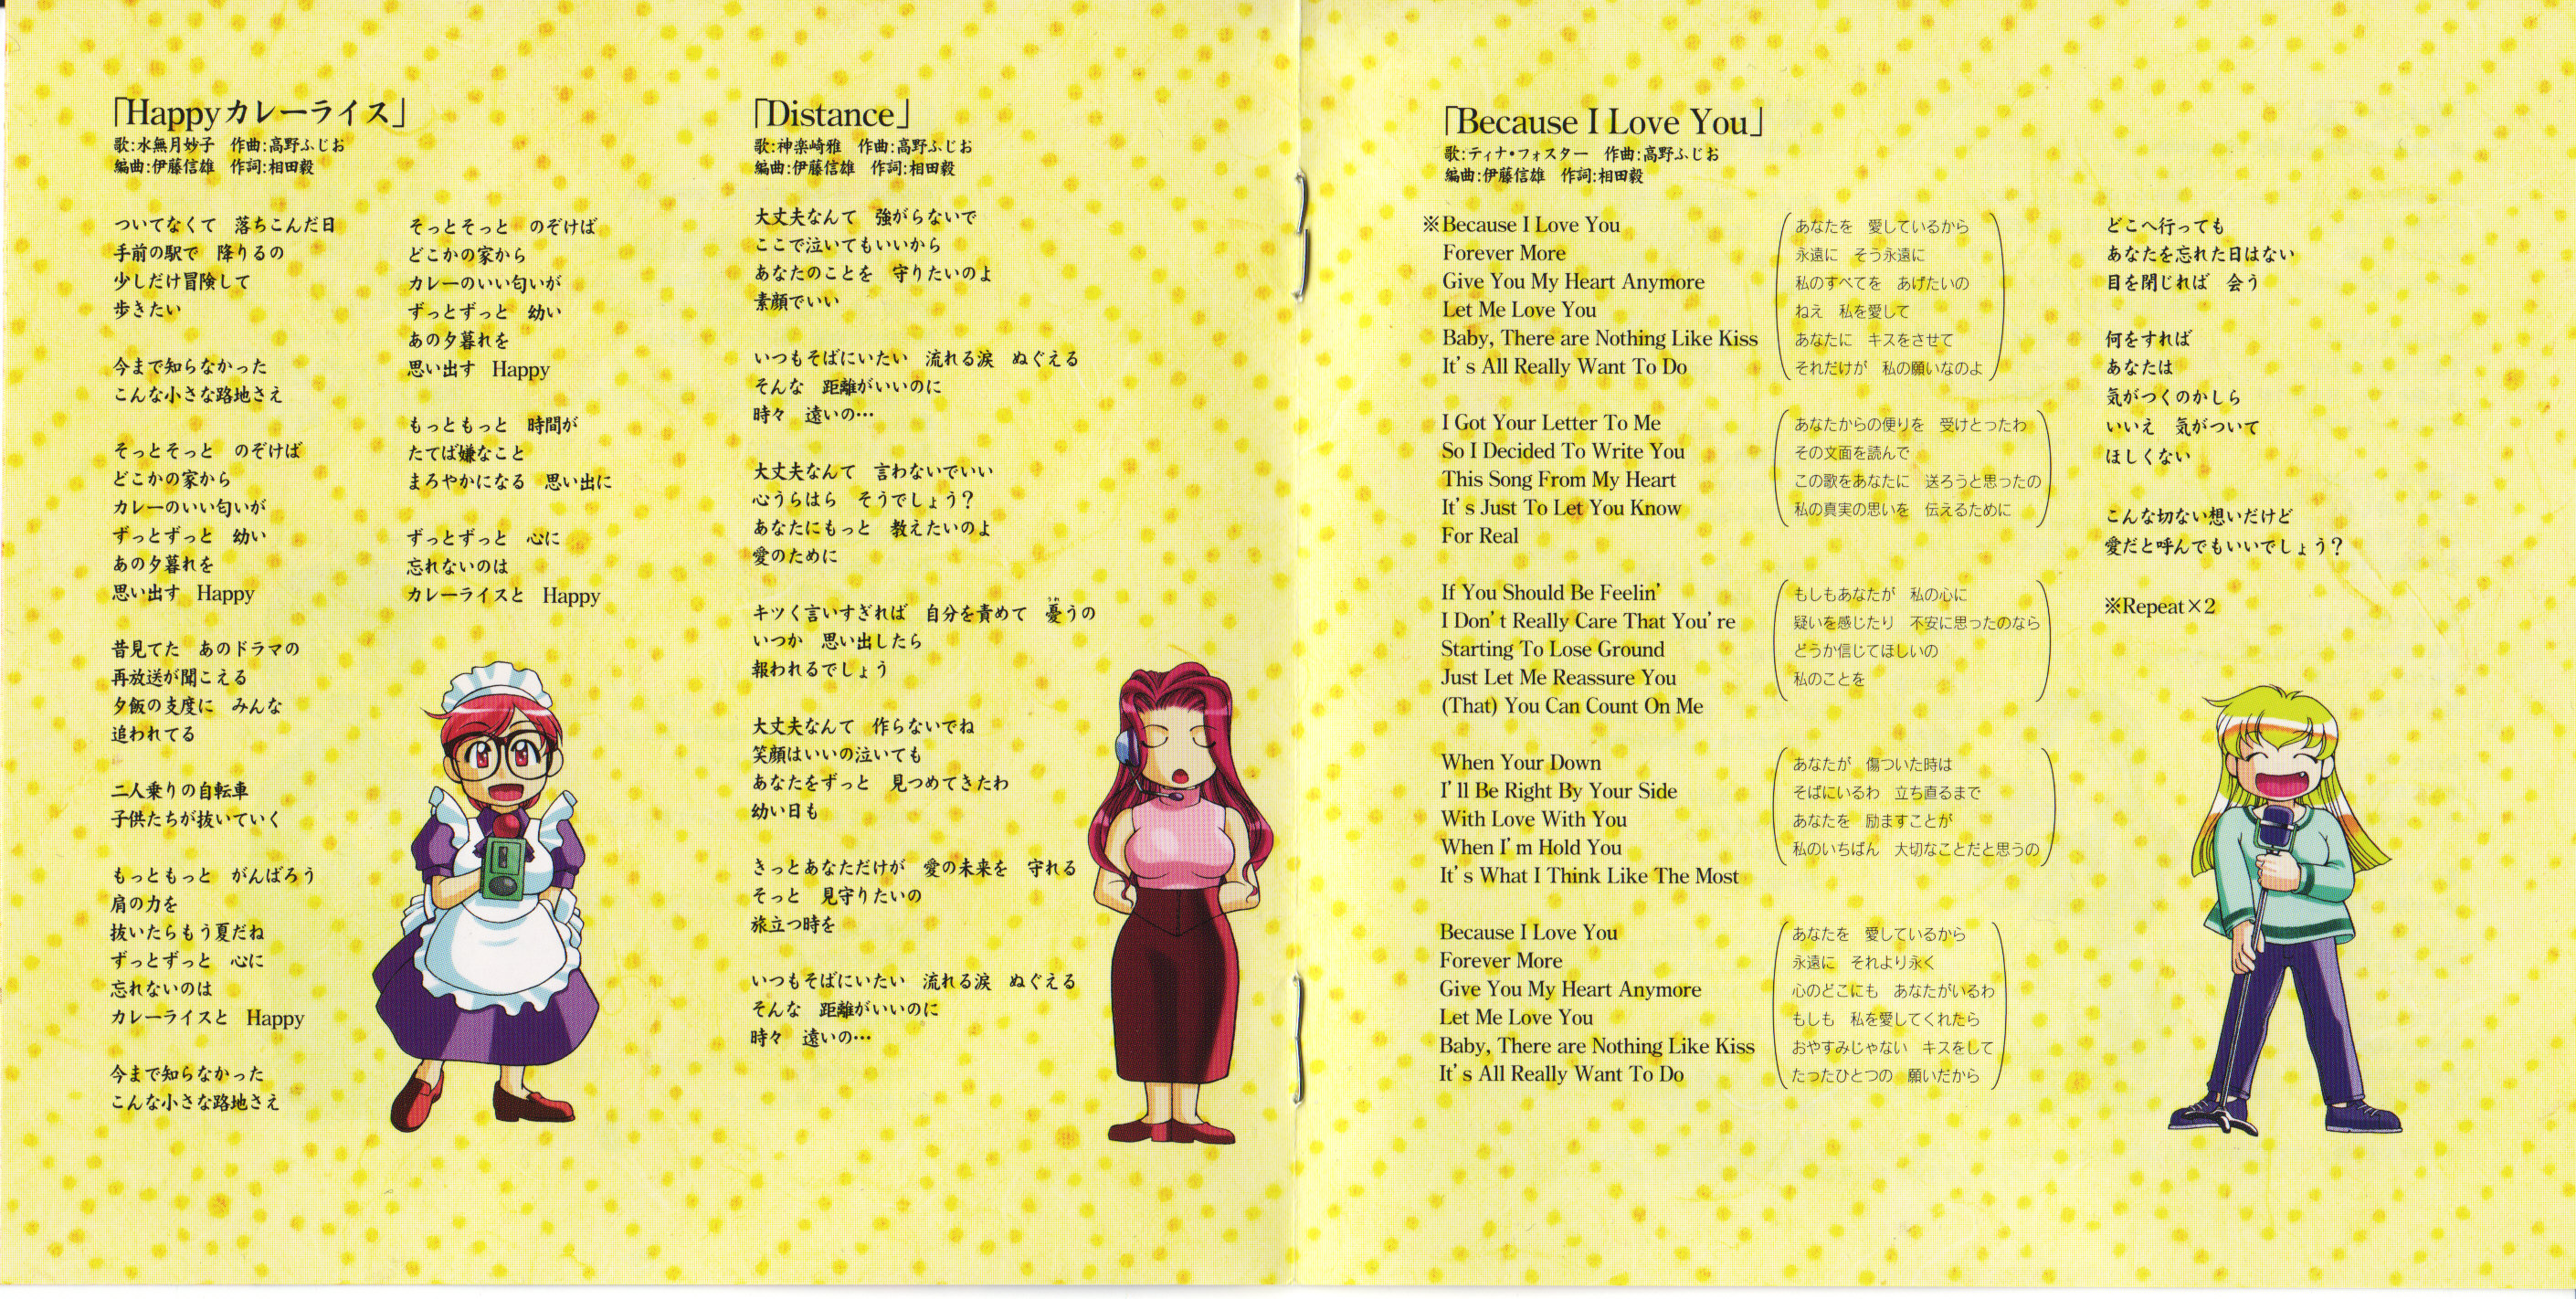 「Happyカレーライス」
歌:水無月妙子　作曲:高野ふじお
編曲:伊藤信雄　作詞:相田毅
ついてなくて　落ちこんだ日
手前の駅で　降りるの
少しだけ冒険して
歩きたい
今まで知らなかった
こんな小さな路地さえ
そっとそっと　のぞけば
どこかの家から
カレーのいい匂いが
ずっとずっと　幼い
あの夕暮れを
思い出す　Happy
昔見てた　あのドラマの
再放送が聞こえる
夕飯の支度に　みんな
追われてる
二人乗りの自転車
子供たちが抜いていく
もっともっと　がんばろう
肩の力を
抜いたらもう夏だね
ずっとずっと　心に
忘れないのは
カレーライスと　Happy
今まで知らなかった
こんな小さな路地さえ
そっとそっと　のぞけば
どこかの家から
カレーのいい匂いが
ずっとずっと　幼い
あの夕暮れを
思い出す　Happy
もっともっと　時間が
たてば嫌なこと
まろやかになる　思い出に
ずっとずっと　心に
忘れないのは
カレーライスと　Happy
「Distance」
歌:神楽崎雅　作曲:高野ふじお
編曲:伊藤信雄　作詞:相田毅
大丈夫なんて　強がらないで
ここで泣いてもいいから
あなたのことを　守りたいのよ
素顔でいい
いつもそばにいたい　流れる涙　ぬぐえる
そんな　距離がいいのに
時々　遠いの…
大丈夫なんて　言わないでいい
心うらはら　そうでしょう？
あなたにもっと　教えたいのよ
愛のために
キツく言いすぎれば　自分を責めて　憂うの
いつか　思い出したら
報われるでしょう
大丈夫なんて　作らないでね
笑顔はいいの泣いても
あなたをずっと　見つめてきたわ
幼い日も
きっとあなただけが　愛の未来を　守れる
そっと　見守りたいの
旅立つ時を
いつもそばにいたい　流れる涙　ぬぐえる
そんな　距離がいいのに
時々　遠いの…
「Because I Love You」
歌:ティナ・フォスター　作曲:高野ふじお
編曲:伊藤信雄　作詞:相田毅
※Because I Love You
Forever More
Give You My Heart Anymore
Let Me Love You
Baby, There are Nothing Like Kiss
It's All Really Want To Do
あなたを　愛しているから
永遠に　そう永遠に
私のすべてを　あげたいの
ねえ　私を愛して
あなたに　キスをさせて
それだけが　私の願いなのよ
I Got Your Letter To Me
So I Decided To Write You
This Song From My Heart
It's Just To Let You Know
For Real
あなたからの便りを　受けとったわ
その文面を読んで
この歌をあなたに　送ろうと思ったの
私の真実の思いを　伝えるために
If You Should Be Feelin'
I Don't Really Care That You're
Starting To Lose Ground
Just Let Me Reassure You
(That) You Can Count On Me
もしもあなたが　私の心に
疑いを感じたり　不安に思ったのなら
どうか信じてほしいの
私のことを
When Your Down
I'll Be Right By Your Side
With Love With You
When I'm Hold You
It's What I Think Like The Most
あなたが　傷ついた時は
そばにいるわ　立ち直るまで
あなたを　励ますことが
私のいちばん　大切なことだと思うの
Because I Love You
Forever More
Give You My Heart Anymore
Let Me Love You
Baby, There are Nothing Like Kiss
It's All Really Want To Do
あなたを　愛しているから
永遠に　それより永く
心のどこにも　あなたがいるわ
もしも　私を愛してくれたら
おやすみじゃない　キスをして
たったひとつの　願いだから
どこへ行っても
あなたを忘れた日はない
目を閉じれば　会う
何をすれば
あなたは
気がつくのかしら
いいえ　気がついて
ほしくない
こんな切ない想いだけど
愛だと呼んでもいいでしょう？
※Repeat×2